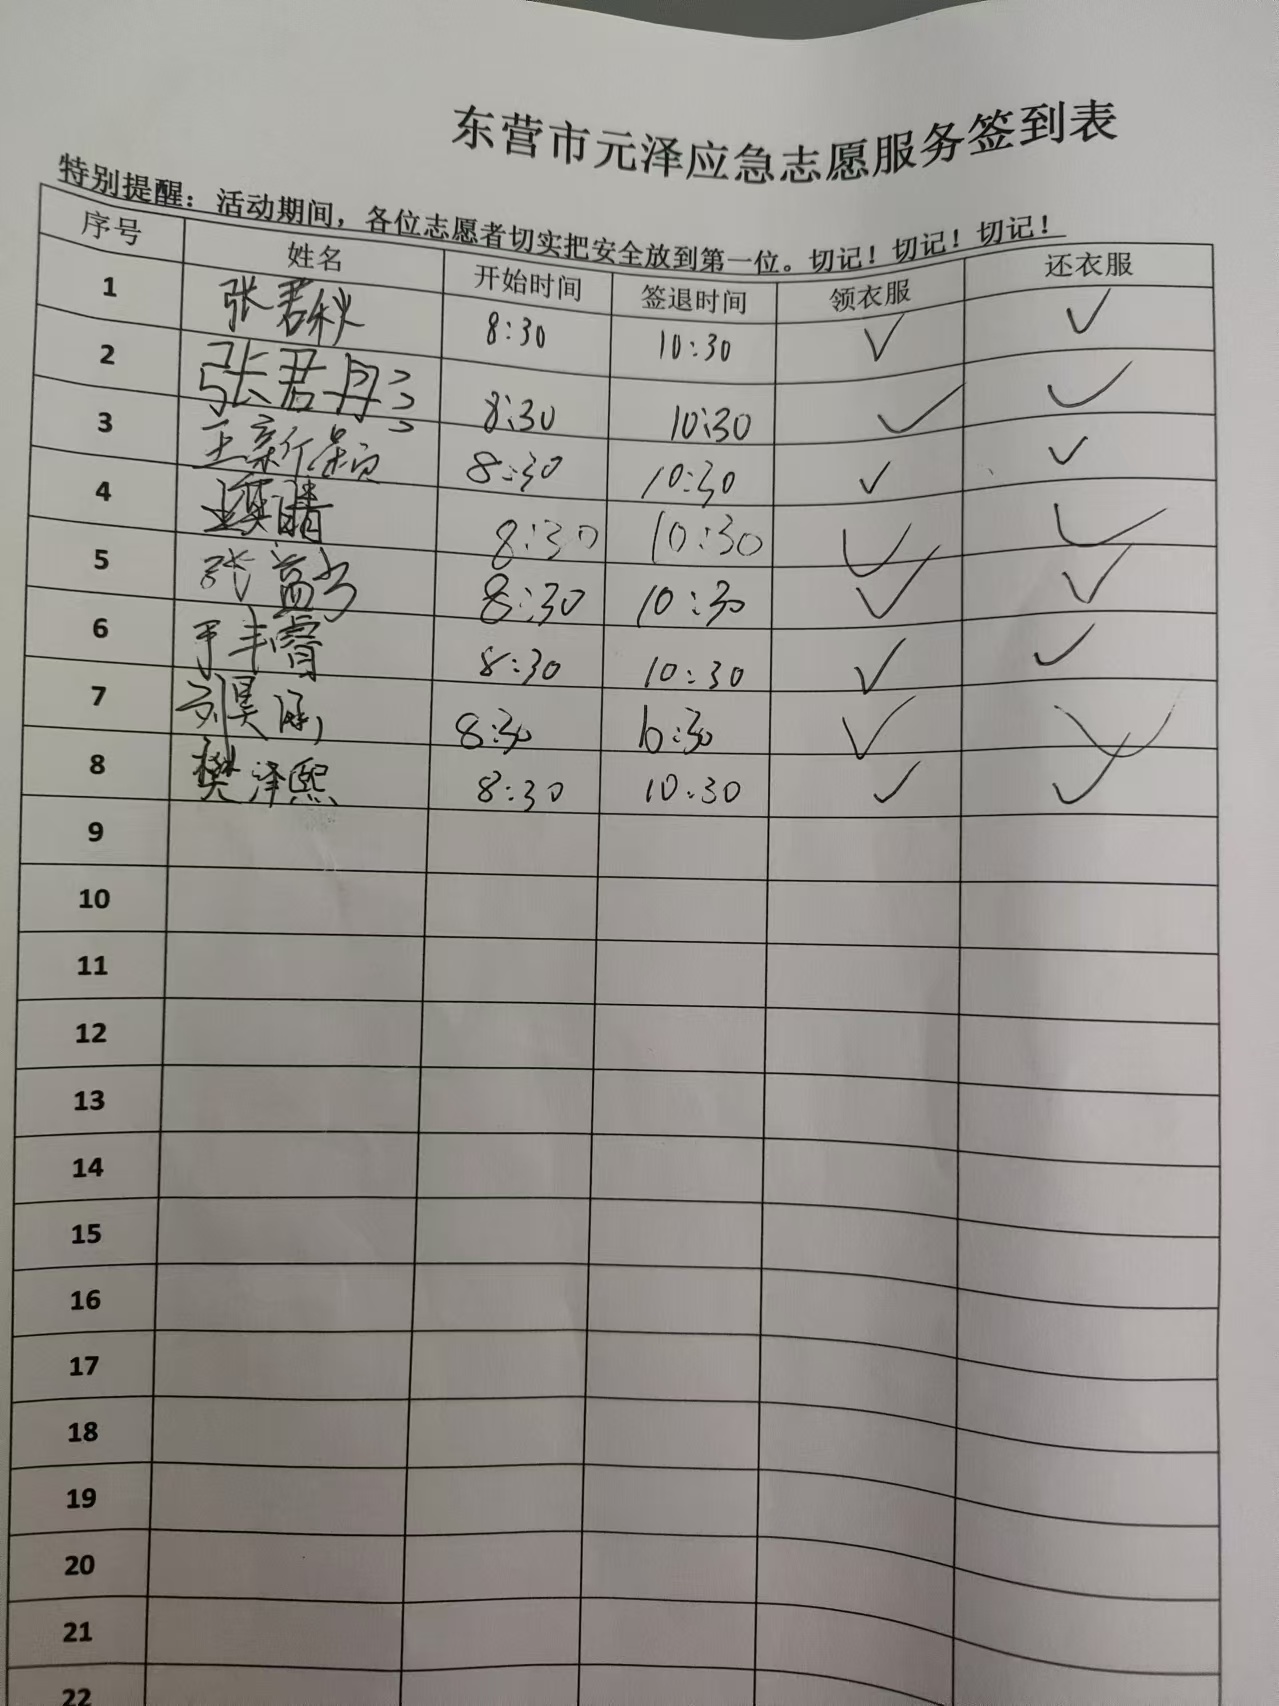 东营市元泽应急志愿服务签到表
特别提醒：活动期间，各位志愿者切实把安全放到第一位。切记！切记！切记！
序号 姓名 开始时间 签退时间 领衣服 还衣服
1 张君秋 8:30 10:30 ✓ ✓
2 张君丹 8:30 10:30 ✓ ✓
3 王 8:30 10:30 ✓ ✓
4 晴 8:30 10:30 ✓ ✓
5 张益 8:30 10:30 ✓ ✓
6 于丰睿 8:30 10:30 ✓ ✓
7 刘昊涵 8:30 10:30 ✓ ✓
8 樊泽熙 8:30 10:30 ✓ ✓
9
10
11
12
13
14
15
16
17
18
19
20
21
22